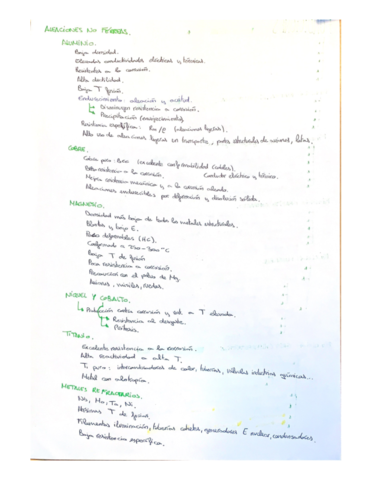 ALEACIONES NO FÉRREAS.
ALUMINIO.
Baja densidad.
Elevadas conductividades eléctricas y térmicas.
Resistentes a la corrosión.
Alta ductilidad.
Baja T fusión.
Endurecimiento aleación y acritud.
Disminuyen resistencia a corrosión.
Precipitación (envejecimiento).
Resistencia específica: Rm/E (aleaciones ligeras).
Alto uso de aleaciones ligeras en transporte, partes estructurales de aviones,
COBRE.
Cobre puro: Buena conformabilidad (cables).
resistencia a la corrosión. Conductor eléctrico y térmico.
Mejora resistencia mecánica y a la corrosión aleando.
Aleaciones endurecibles por deformación y disolución sólida.
MAGNESIO.
Densidad más baja de todos los metales estructurales.
Blandos y bajo E.
deformables (HC).
Conformado a 250-300 °C
Baja T de fusión
Poca resistencia a corrosión.
con el polvo de Mg.
Aviones, misiles,
NÍQUEL Y COBALTO.
Protección contra corrosión y est. a T elevadas.
Resistencia al desgaste.
TITANIO.
Excelente resistencia a la corrosión.
Alta reactividad a altas T.
Ti puro: intercambiadores de calor, tuberías, válvulas industrias químicas...
Metal con alotropía.
METALES REFRACTARIOS.
Nb, Mo, Ta,
T de fusión.
Filamentos iluminación, tuberías cohetes, generadores E nuclear, condensadores.
Baja resistencia específica.